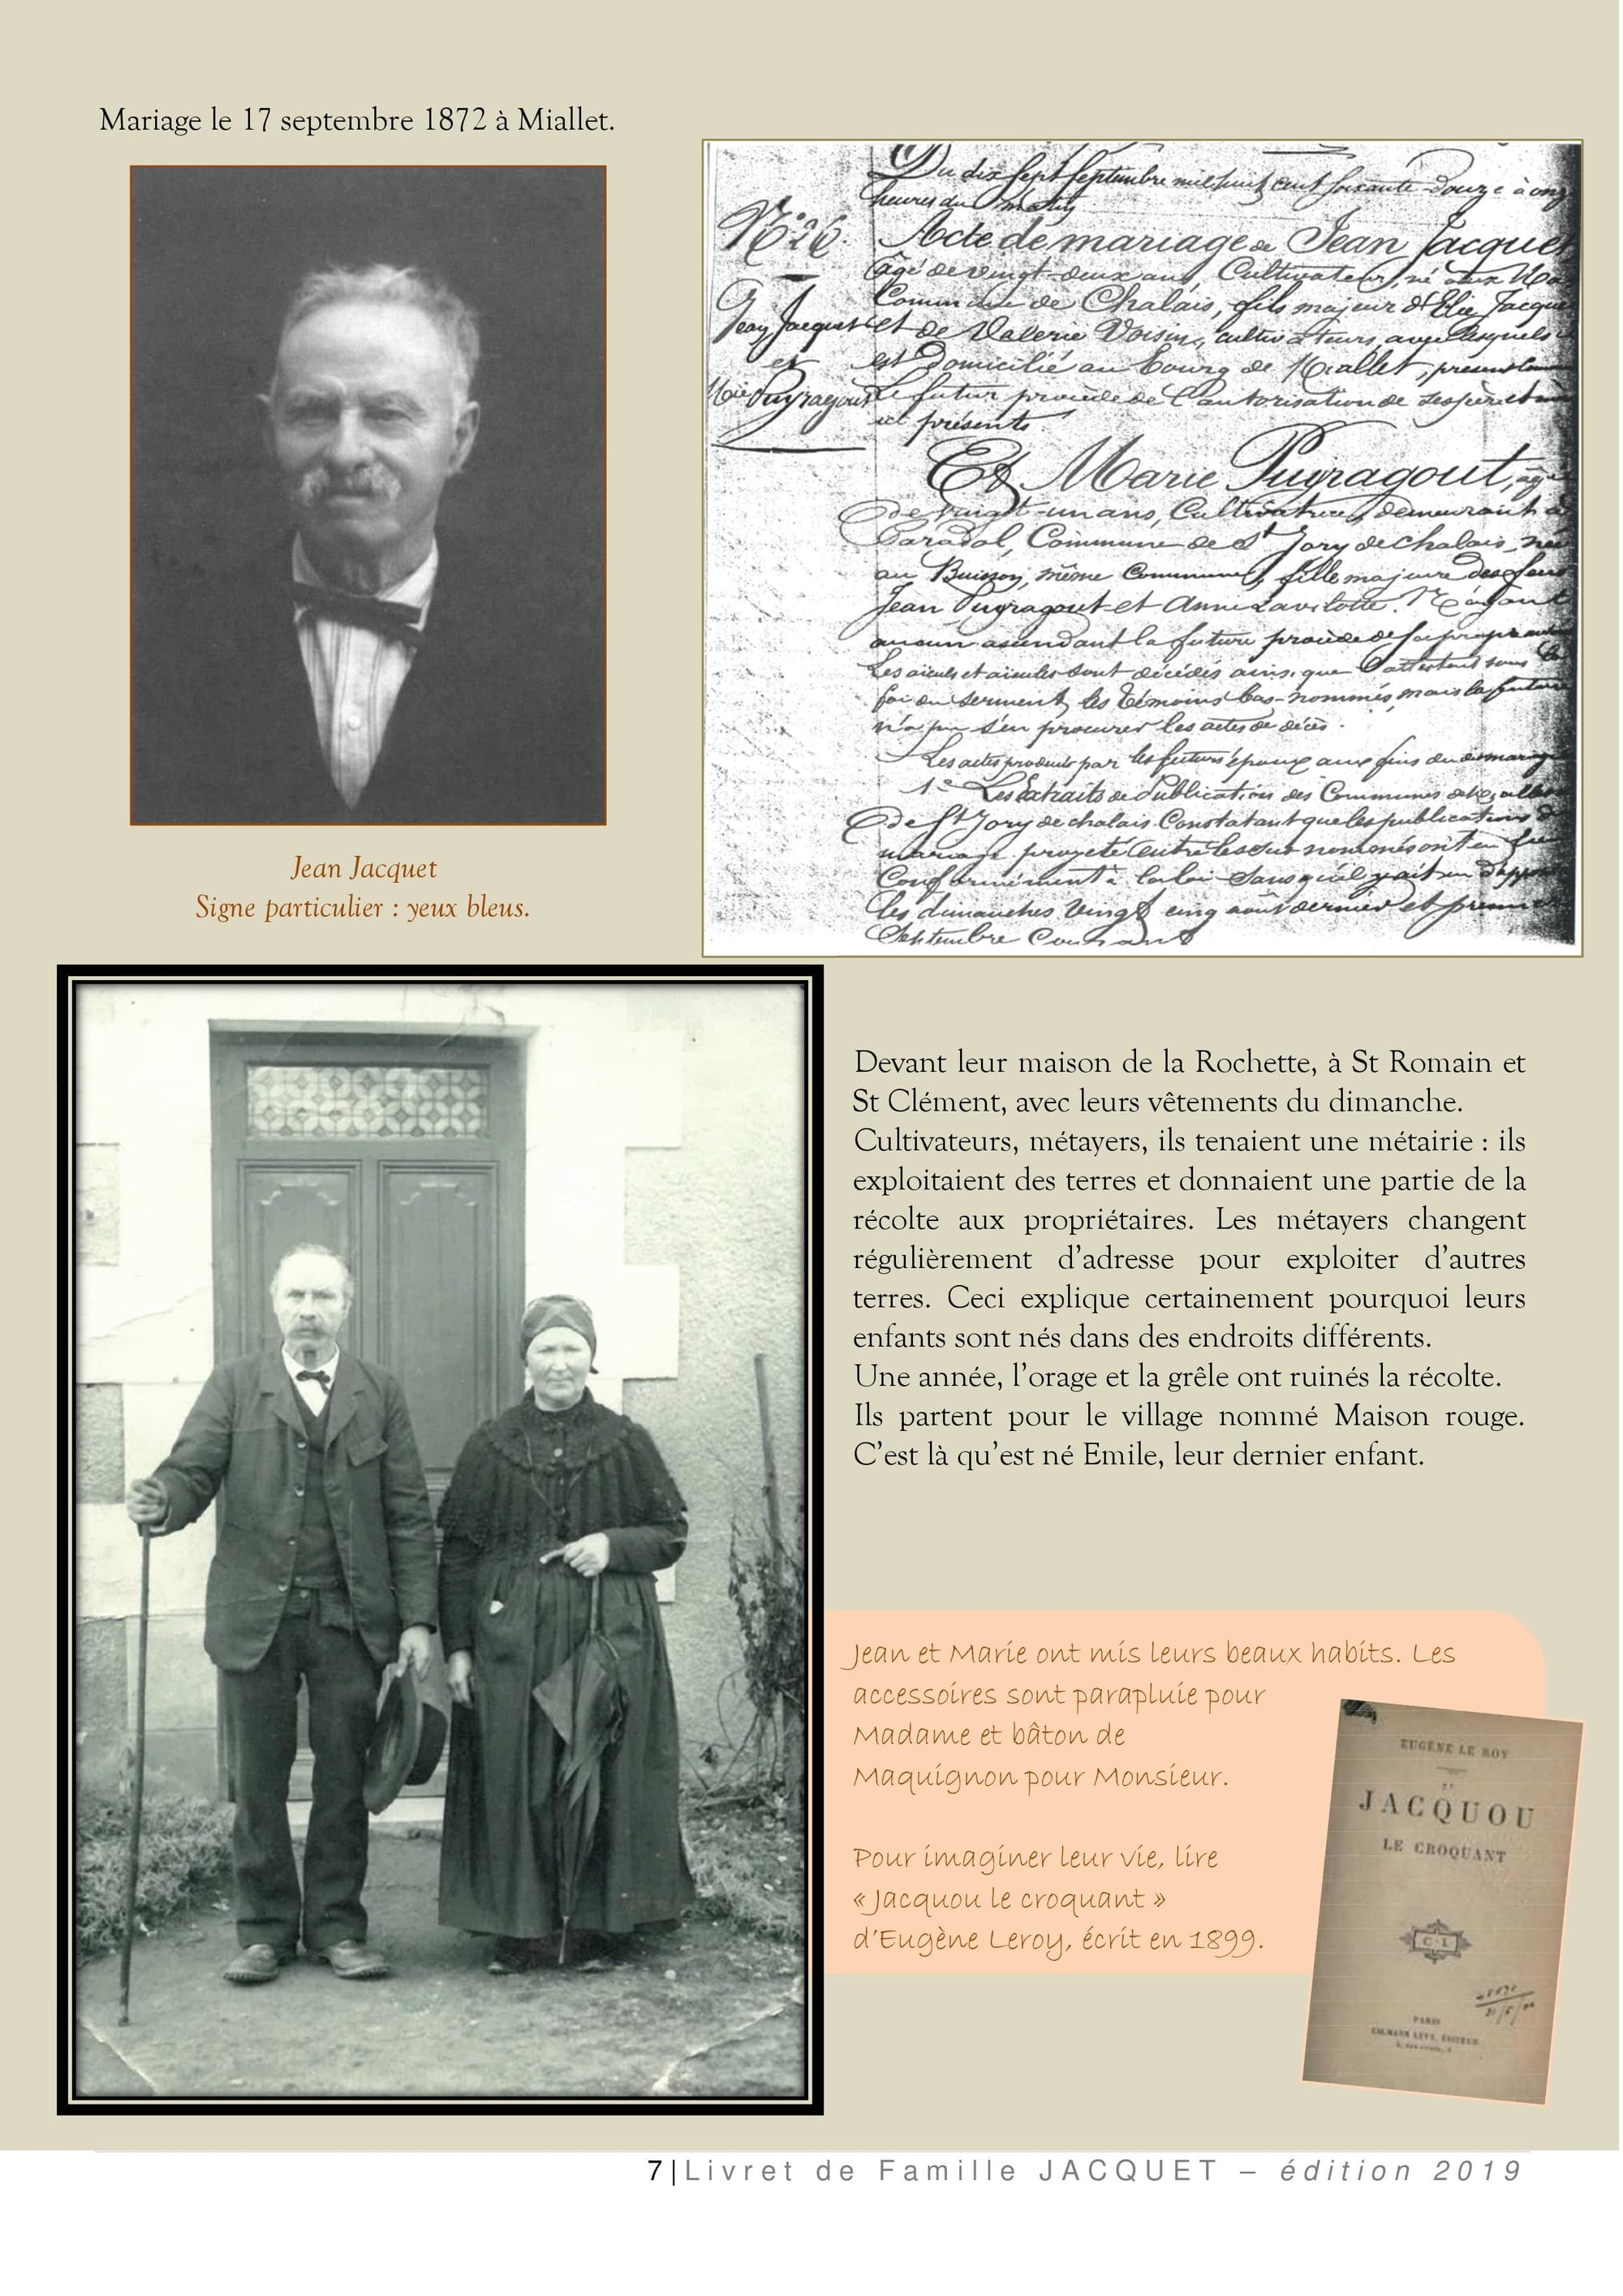 Mariage le 17 septembre 1872 à Miallet.
Du dix sept Septembre mil huit cent soixante-douze à onz
heures du matin
N°26. Acte de mariage de Jean Jacquet
âgé de vingt-deux ans, Cultivateur, né aux
Commune de Chalais, fils majeur d'Elie Jacque
Jean Jacquet et de Valerie Voisin, cultivateurs, avec lesquels
et est Domicilié au bourg de Miallet,
Marie Puyragout Le futur procède de l'autorisation de ses père et
ici présents.
Et Marie Puyragout, âgée
de vingt-un ans, Cultivatrice, demeurant à
Commune de St Jory de Chalais, née
au Buisson, même Commune, fille majeure des
Jean Puyragout et Anne Lavilotte. N'ayant
aucun ascendant la future procède de
Les aieuls et aieules sont décédés ainsi que l'attestent sous la
foi du serment, les témoins bas-nommés, mais la future
n'a pu s'en procurer les actes de décès.
Les actes produits par les futurs époux aux fins du mariage
1° Les Extraits de Publication des Communes de
de St Jory de chalais Constatant que les publications de
mariage projeté entre les sus-nommés ont eu lieu
Conformément à la loi sans qu'il y ait eu d'oppos
les dimanches vingt cinq août dernier et premier
Septembre Courant
Jean Jacquet
Signe particulier : yeux bleus.
Devant leur maison de la Rochette, à St Romain et
St Clément, avec leurs vêtements du dimanche.
Cultivateurs, métayers, ils tenaient une métairie : ils
exploitaient des terres et donnaient une partie de la
récolte aux propriétaires. Les métayers changent
régulièrement d'adresse pour exploiter d'autres
terres. Ceci explique certainement pourquoi leurs
enfants sont nés dans des endroits différents.
Une année, l'orage et la grêle ont ruinés la récolte.
Ils partent pour le village nommé Maison rouge.
C'est là qu'est né Emile, leur dernier enfant.
Jean et Marie ont mis leurs beaux habits. Les
accessoires sont parapluie pour
Madame et bâton de
Maquignon pour Monsieur.
Pour imaginer leur vie, lire
« Jacquou le croquant »
d'Eugène Leroy, écrit en 1899.
EUGÈNE LE ROY
JACQUOU
LE CROQUANT
C·L
PARIS
CALMANN LÉVY, ÉDITEUR
7|Livret de Famille JACQUET – édition 2019